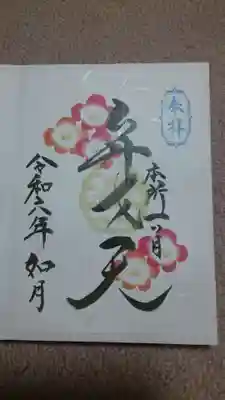 奉拝
本所一つ目
弁才天
令和六年 如月